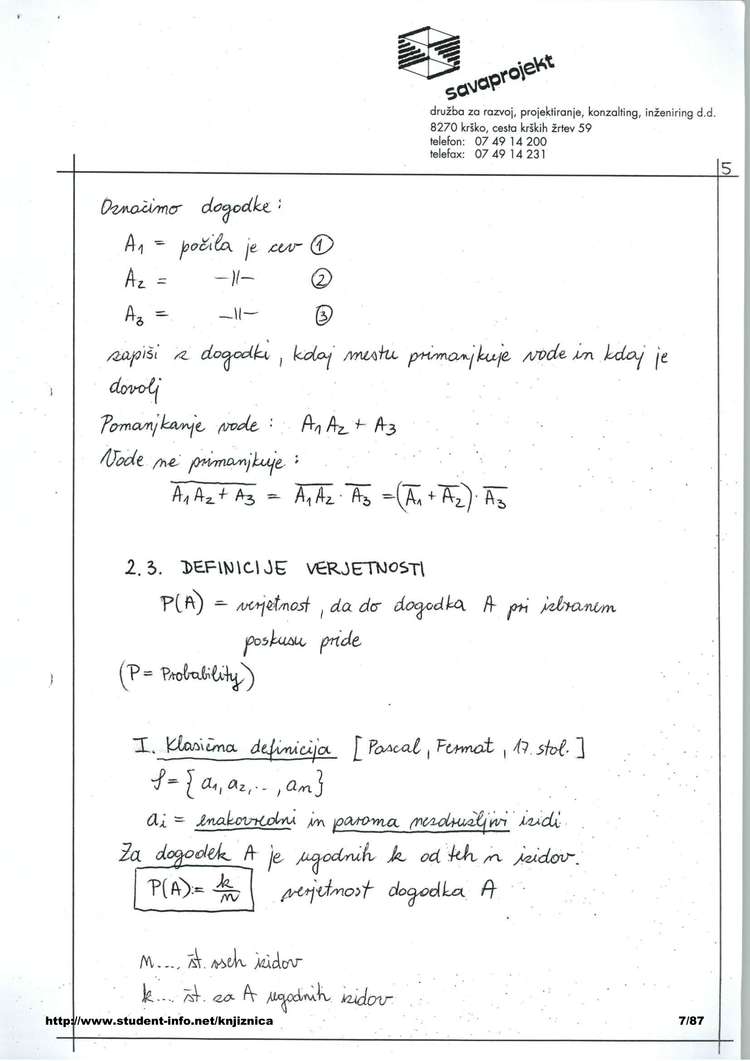 savaprojekt
družba za razvoj, projektiranje, konzalting, inženiring d.d.
8270 krško, cesta krških žrtev 59
telefon: 07 49 14 200
telefax: 07 49 14 231
5
Označimo dogodke:
A₁ = počila je cev ①
A₂ = —||— ②
A₃ = —||— ③
zapiši z dogodki, kdaj mestu primanjkuje vode in kdaj je
dovolj
Pomanjkanje vode: A₁A₂ + A₃
Vode ne primanjkuje:
\overline{A₁A₂ + A₃} = \overline{A₁A₂} · \overline{A₃} = (\overline{A₁} + \overline{A₂}) · \overline{A₃}
2.3. DEFINICIJE VERJETNOSTI
P(A) = verjetnost, da do dogodka A pri izbranem
poskusu pride
(P = Probability)
I. Klasična definicija [Pascal, Fermat, 17. stol.]
𝒮 = {a₁, a₂, .., aₙ}
aᵢ = enakovredni in paroma nezdružljivi izidi
Za dogodek A je ugodnih k od teh n izidov.
P(A) := k/n verjetnost dogodka A
n..., št. vseh izidov
k... št. za A ugodnih izidov
http://www.student-info.net/knjiznica 7/87